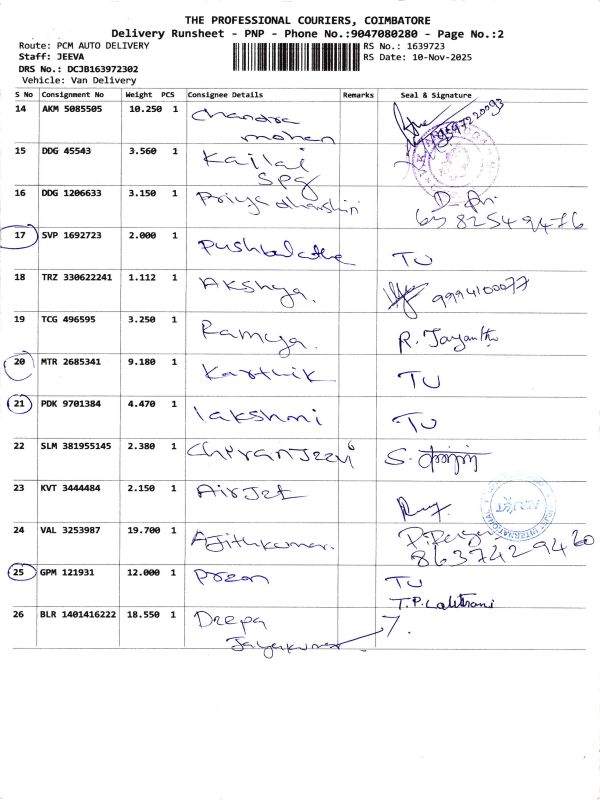 THE PROFESSIONAL COURIERS, COIMBATORE
Delivery Runsheet - PNP - Phone No.:9047080280 - Page No.:2
Route: PCM AUTO DELIVERY
RS No.: 1639723
Staff: JEEVA
RS Date: 10-Nov-2025
DRS No.: DCJB163972302
Vehicle: Van Delivery
S No Consignment No Weight PCS Consignee Details Remarks Seal & Signature
14 AKM 5085505 10.250 1 Chandra
mohan
9597220093
15 DDG 45543 3.560 1 Kailai
Spg
16 DDG 1206633 3.150 1 Priyadharshini
6382549476
17 SVP 1692723 2.000 1 Pushbalatha TU
18 TRZ 330622241 1.112 1 Akshya. 9994100077
19 TCG 496595 3.250 1 Ramya. R. Jayanthi
20 MTR 2685341 9.180 1 Karthik TU
21 PDK 9701384 4.470 1 lakshmi TU
22 SLM 381955145 2.380 1 Chiranjeevi S.
23 KVT 3444484 2.150 1 AirJet
24 VAL 3253987 19.700 1 Ajithkumar.
8637429420
25 GPM 121931 12.000 1 Prozon TU
26 BLR 1401416222 18.550 1 Deepa T.P. Lalitrani
Jayakumar 7.